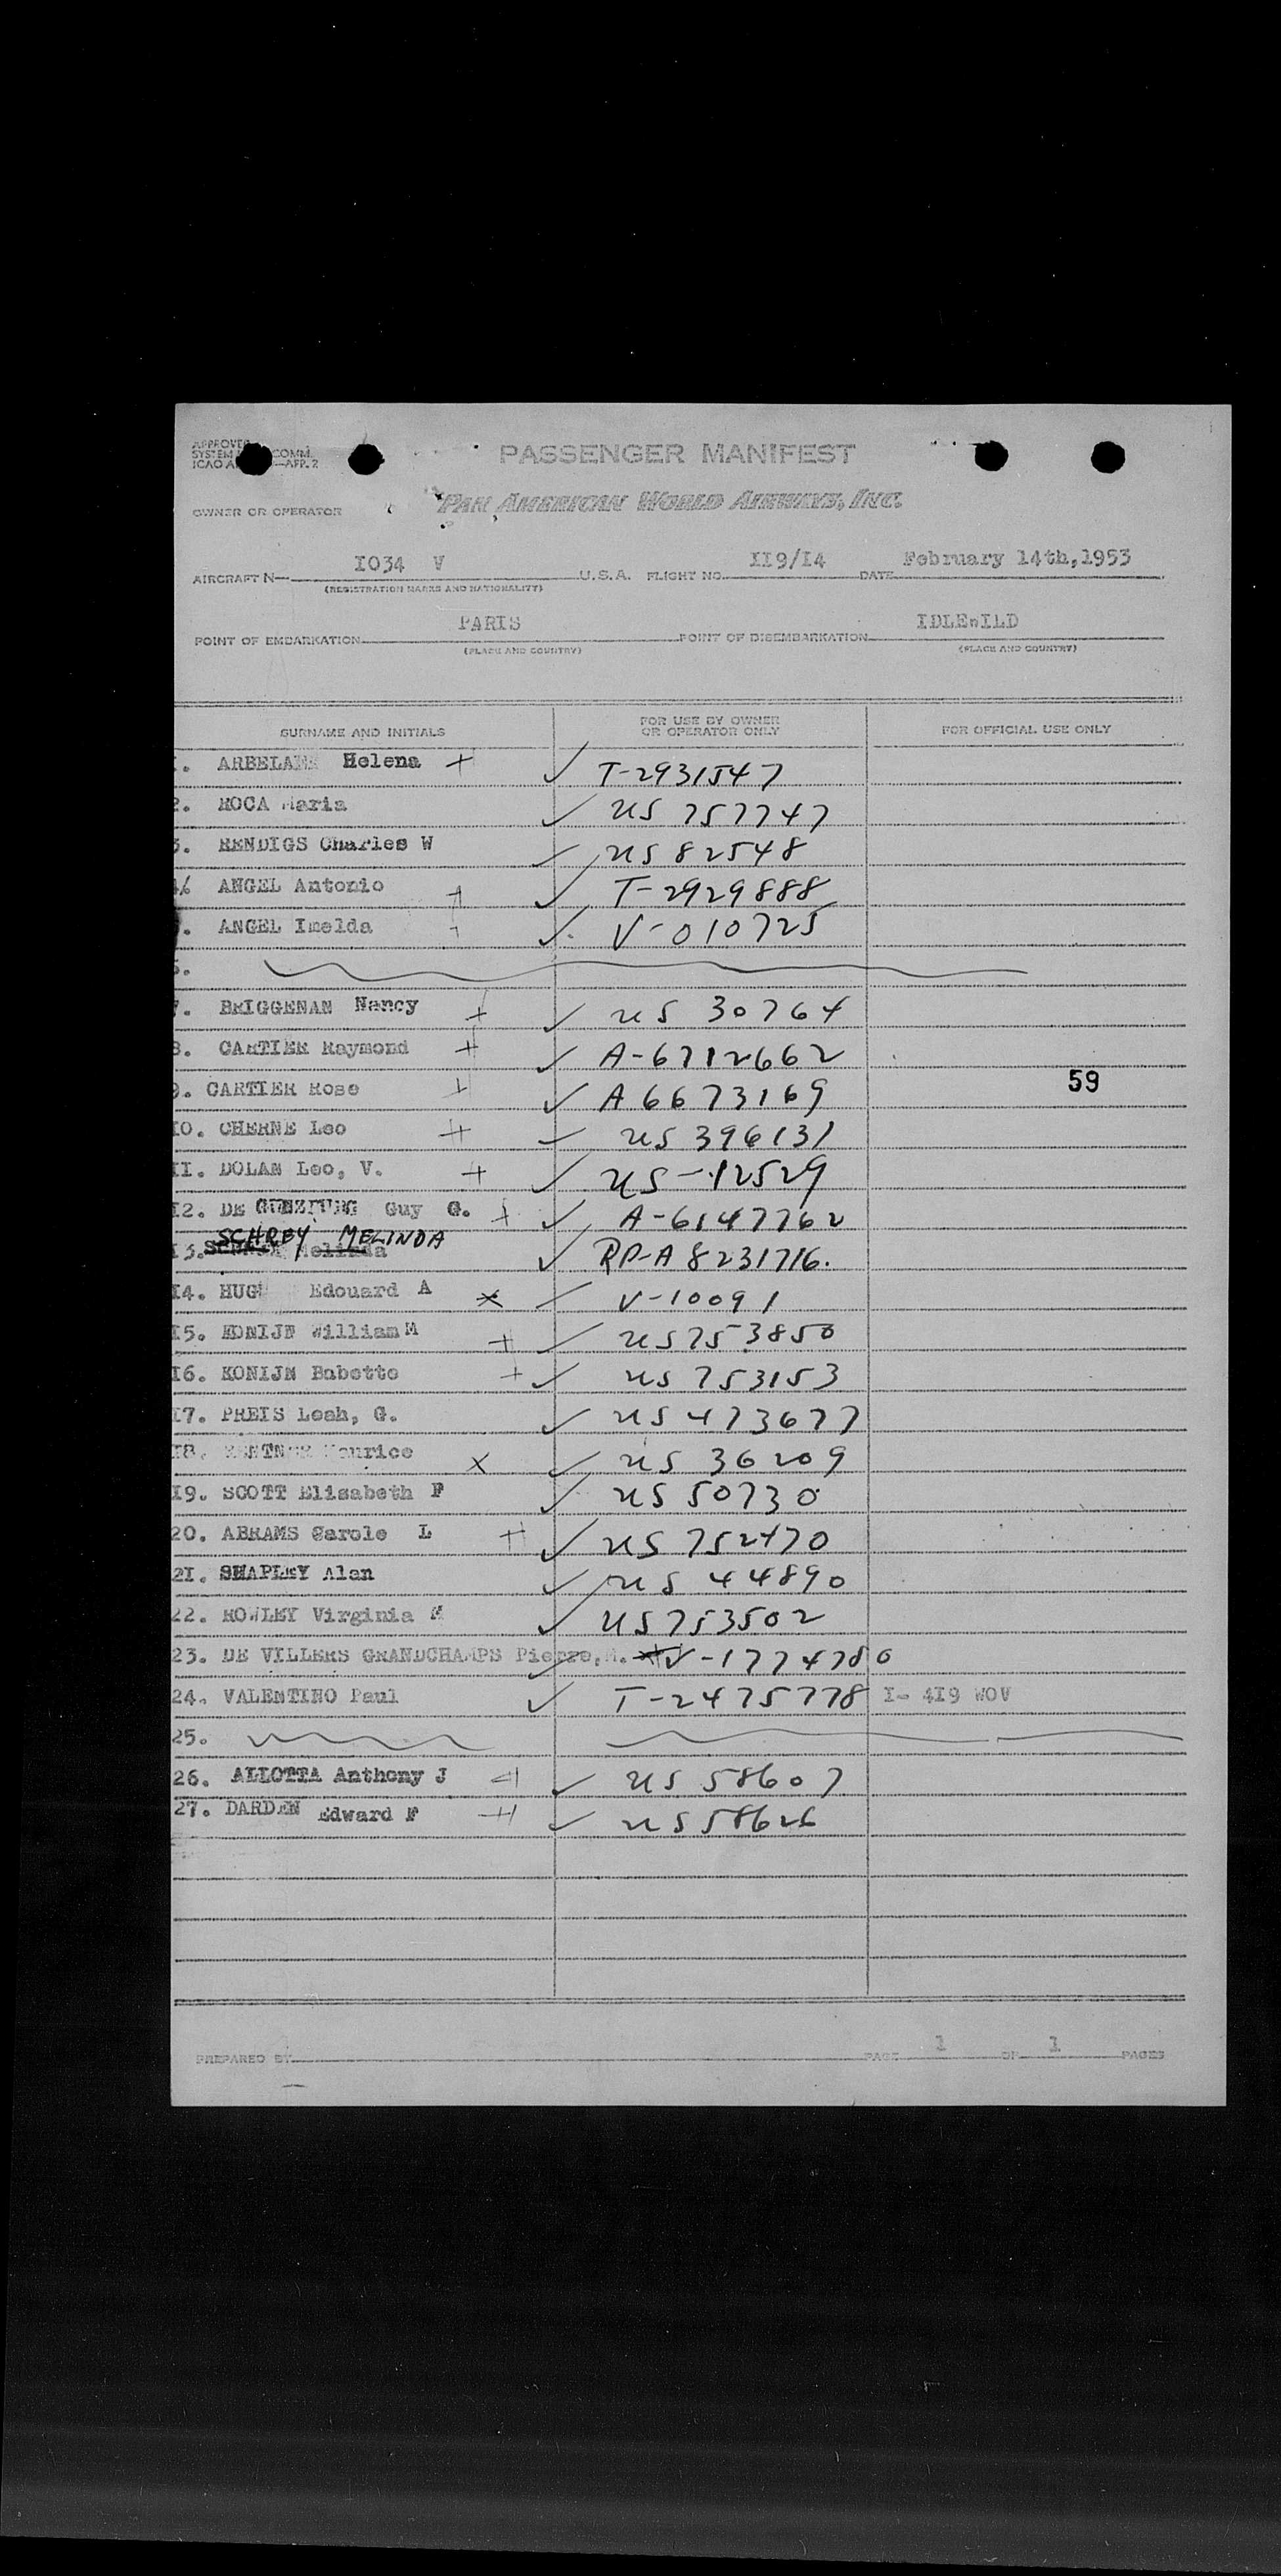 APPROVED
SYSTEM COMM.
ICAO A —APP. 2
PASSENGER MANIFEST
OWNER OR OPERATOR PAN AMERICAN WORLD AIRWAYS, INC.
AIRCRAFT N— I034 V U.S.A. FLIGHT NO. II9/I4 DATE February 14th,1953
(REGISTRATION MARKS AND NATIONALITY)
POINT OF EMBARKATION PARIS POINT OF DISEMBARKATION IDLEwILD
(PLACE AND COUNTRY) (PLACE AND COUNTRY)
SURNAME AND INITIALS FOR USE BY OWNER OR OPERATOR ONLY FOR OFFICIAL USE ONLY
. Helena + ✓ T-2931547
. ROCA Maria ✓ US 757747
. RENDIGS Charles W ✓ US 82548
ANGEL Antonio + ✓ T-2929888
. ANGEL Imelda ✓ V-010725
.
. BRIGGEMAN Nancy + ✓ US 30764
. CARTIER Raymond + ✓ A-6712662
. CARTIER Rose + ✓ A6673169 59
I0. CHERNE Leo + ✓ US 396131
II. DOLAN Leo, V. + ✓ US-12529
I2. DE GUNZBURG Guy G. + ✓ A-6147762
I3. SCHREY MELINDA ✓ RP-A 8231716.
I4. Edouard A ✓ V-10091
I5. KONIJN William M + ✓ US 753850
I6. KONIJN Babette + ✓ US 753153
I7. PREIS Leah, G. ✓ US 473677
I8. Maurice X ✓ US 36209
I9. SCOTT Elisabeth F ✓ US 50730
20. ABRAMS Carole L + ✓ US 752470
2I. SHAPLEY Alan ✓ US 44890
22. ROWLEY Virginia ✓ US 753502
23. DE VILLERS GRANDCHAMPS Pierre,M. V-1774786
24. VALENTINO Paul ✓ T-2475778 I- 4I9 WOV
25.
26. ALLOTTA Anthony J ✓ US 58607
27. DARDEN Edward F + ✓ US 58626
PREPARED BY PAGE 1 OF 1 PAGES